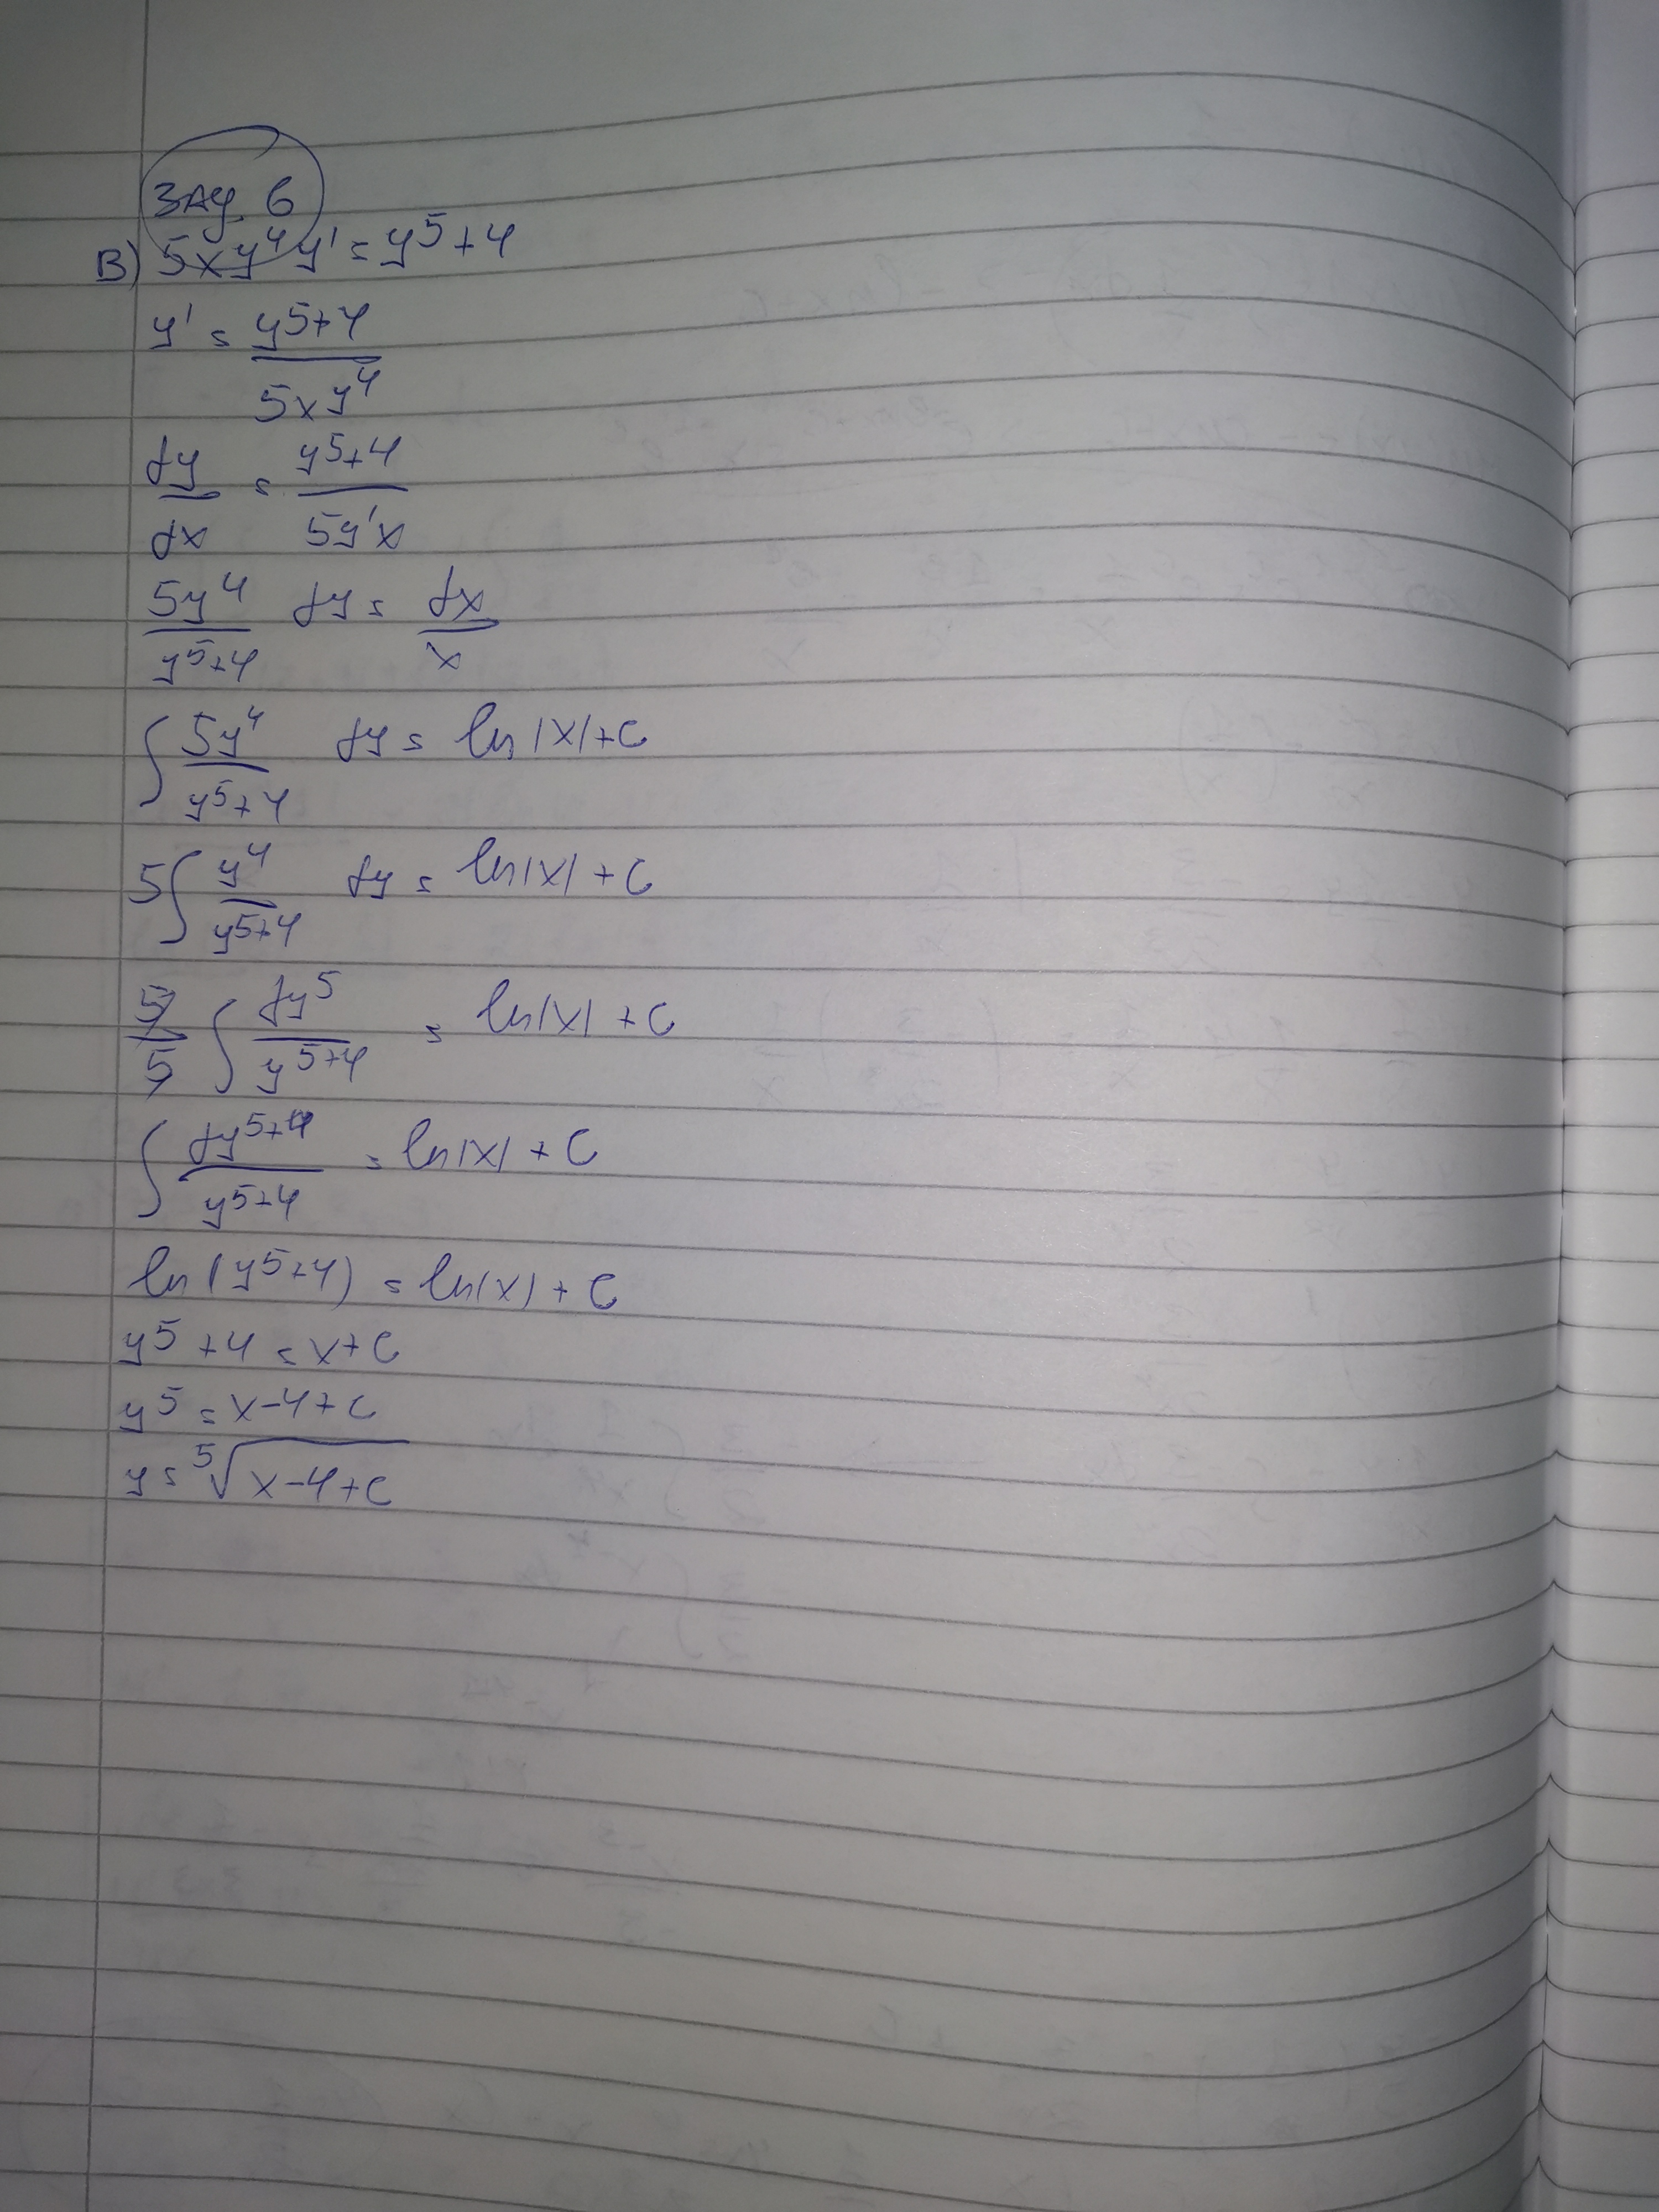 ЗАД. 6
В) 5xy⁴y' = y⁵+4
y' = y⁵+4 / 5xy⁴
dy/dx = y⁵+4 / 5y'x
5y⁴/y⁵+4 dy = dx/x
∫ 5y⁴/y⁵+4 dy = ln|x|+C
5∫ y⁴/y⁵+4 dy = ln|x|+C
5/5 ∫ dy⁵/y⁵+4 = ln|x|+C
∫ dy⁵+4/y⁵+4 = ln|x|+C
ln(y⁵+4) = ln(x)+C
y⁵+4 = x+C
y⁵ = x-4+C
y = ⁵√x-4+C